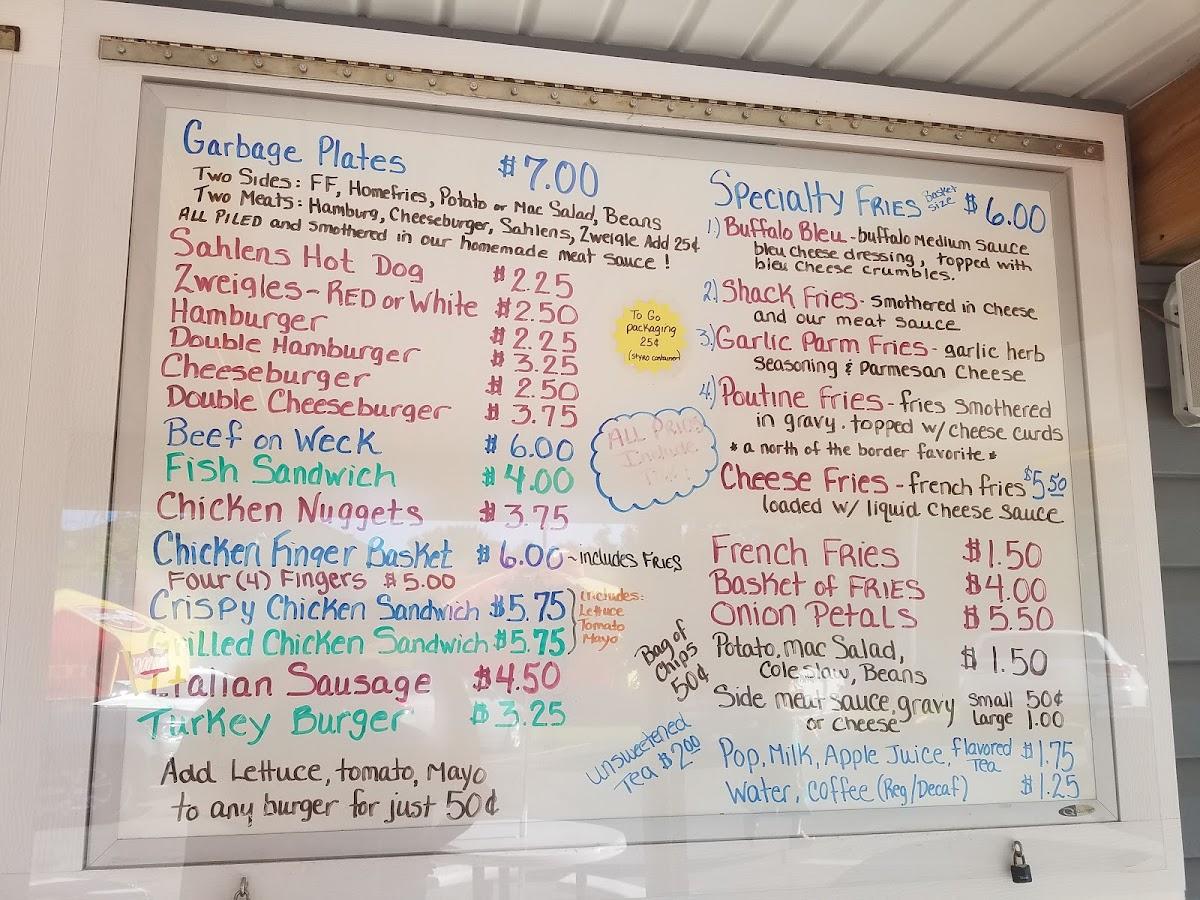 Garbage Plates $7.00
Two Sides: FF, Homefries, Potato or Mac Salad, Beans
Two Meats: Hamburg, Cheeseburger, Sahlens, Zweigle Add 25¢
ALL PILED and smothered in our homemade meat sauce!
Sahlens Hot Dog $2.25
Zweigles - RED or White $2.50
Hamburger $2.25
Double Hamburger $3.25
Cheeseburger $2.50
Double Cheeseburger $3.75
Beef on Weck $6.00
Fish Sandwich $4.00
Chicken Nuggets $3.75
Chicken Finger Basket $6.00 - includes FRIES
Four (4) Fingers $5.00
Crispy Chicken Sandwich $5.75
Grilled Chicken Sandwich $5.75
includes:
Lettuce
Tomato
Mayo
Italian Sausage $4.50
Turkey Burger $3.25
Add Lettuce, tomato, Mayo
to any burger for just 50¢
To Go
packaging
25¢
(styro container)
ALL PRICES
Include
Bag of
Chips
50¢
unsweetened
Tea $2.00
Specialty FRIES Basket size $6.00
1.) Buffalo Bleu - buffalo Medium Sauce
bleu cheese dressing, topped with
bleu cheese crumbles.
2.) Shack Fries - smothered in cheese
and our meat sauce
3.) Garlic Parm Fries - garlic herb
seasoning & Parmesan Cheese
4.) Poutine Fries - fries smothered
in gravy. topped w/ cheese curds
* a north of the border favorite *
Cheese Fries - french fries $5.50
loaded w/ liquid cheese sauce
French Fries $1.50
Basket of FRIES $4.00
Onion Petals $5.50
Potato, mac Salad,
Coleslaw, Beans $1.50
Side meat sauce, gravy small 50¢
or cheese Large 1.00
Pop, Milk, Apple Juice, flavored Tea $1.75
Water, coffee (Reg/Decaf) $1.25